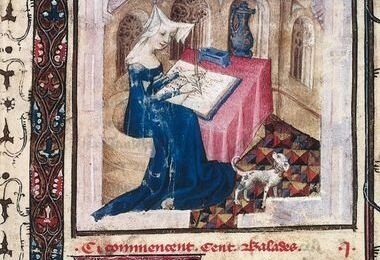 · Ci commencent. Cent. Balades. · j.